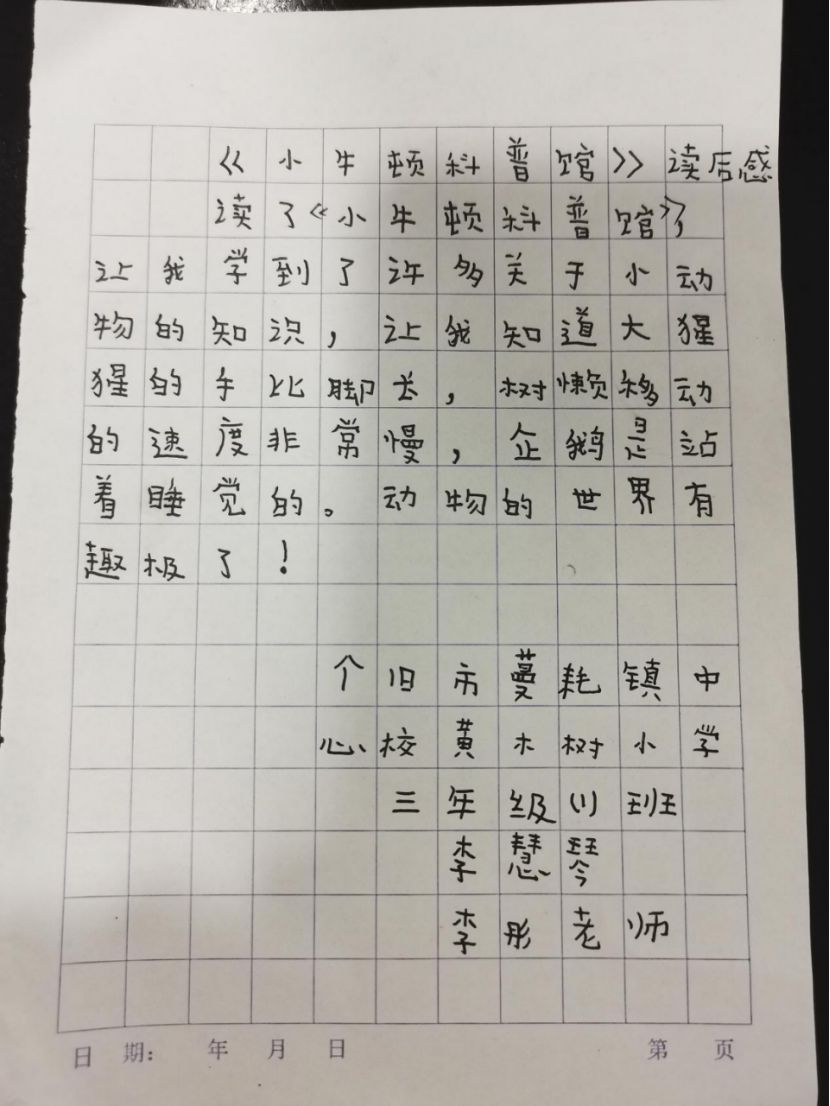 《小牛顿科普馆》读后感
读了《小牛顿科普馆》
让我学到了许多关于小动
物的知识，让我知道大猩
猩的手比脚长，树懒移动
的速度非常慢，企鹅是站
着睡觉的。动物的世界有
趣极了！
个旧市蔓耗镇中
心校黄木树小学
三年级(1)班
李慧琴
李彤老师
日期： 年 月 日 第 页